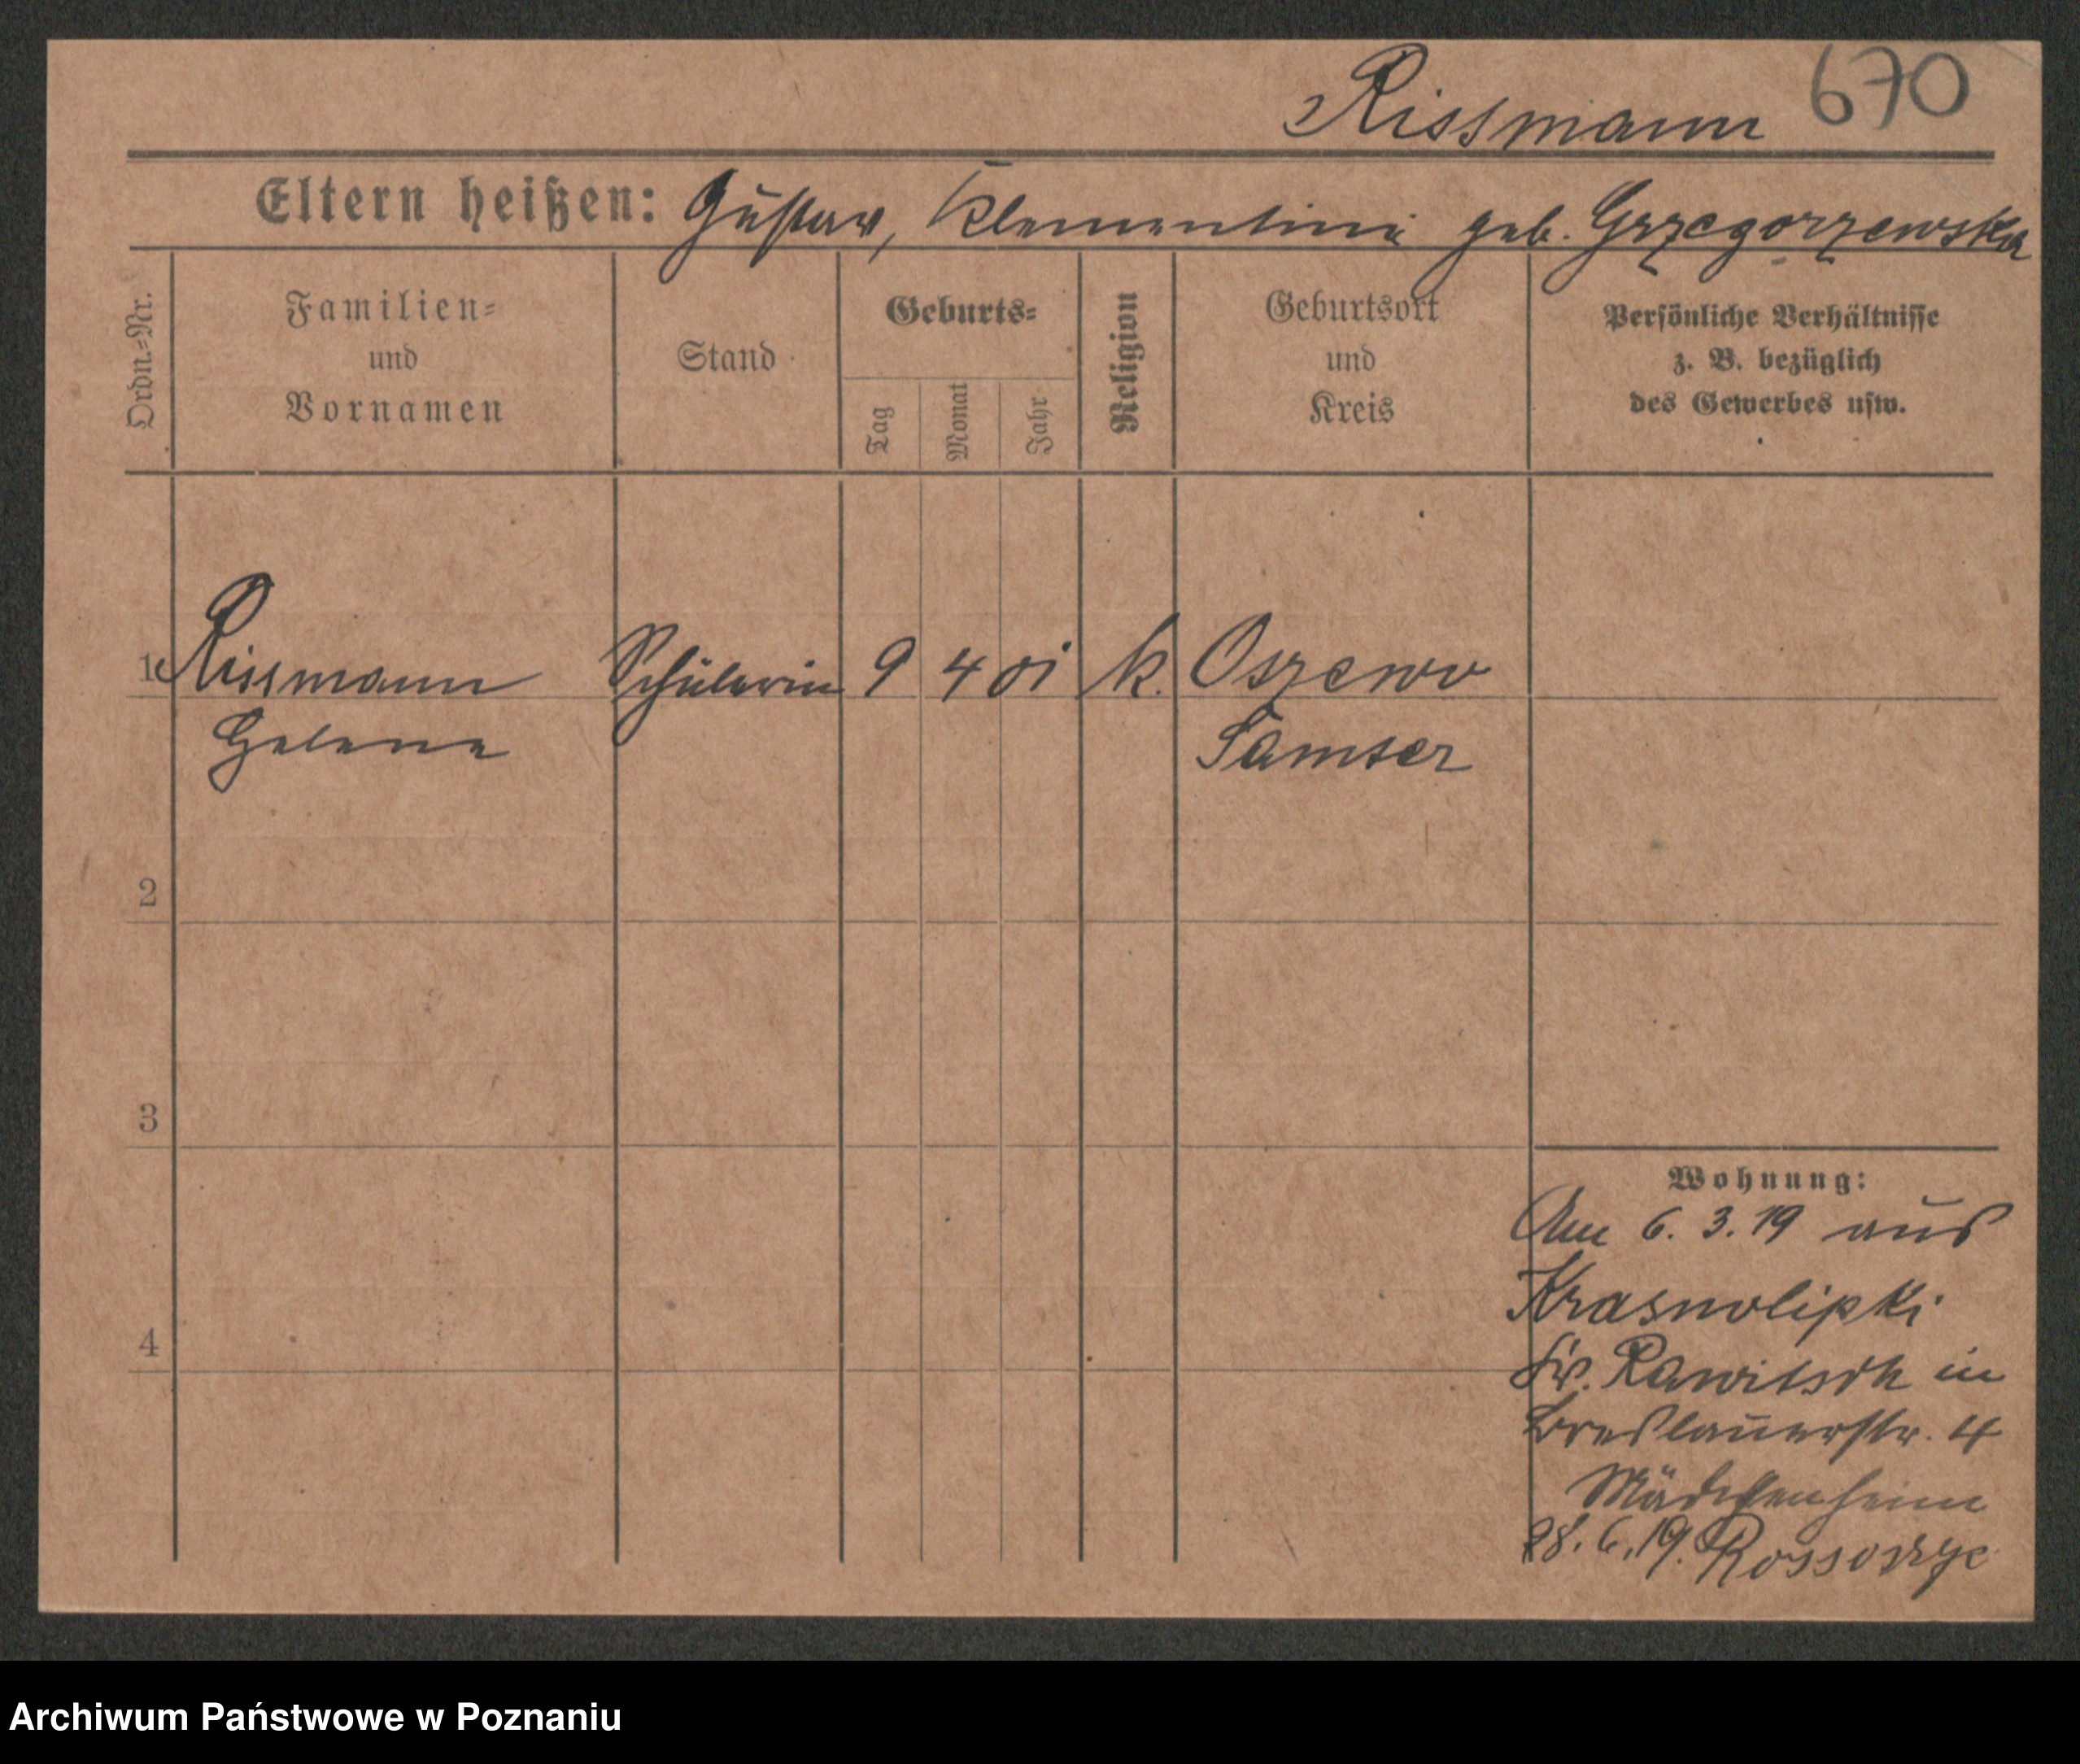 Rissmann 670
Eltern heißen: Gustav, Klementine geb. Grzegorzewska
Ordn.=Nr.
Familien=
und
Vornamen
Stand
Geburts=
Tag
Monat
Jahr
Religion
Geburtsort
und
Kreis
Persönliche Verhältnisse
z. B. bezüglich
des Gewerbes usw.
1 Rissmann Schülerin 9 4 01 k. Oszewo
Helene Samter
2
3
4
Wohnung:
Am 6. 3. 19 aus
Krasnolipki
Kr. Rawitsch in
Breslauerstr. 4
Mädchenheim
28. 6. 19.
Archiwum Państwowe w Poznaniu